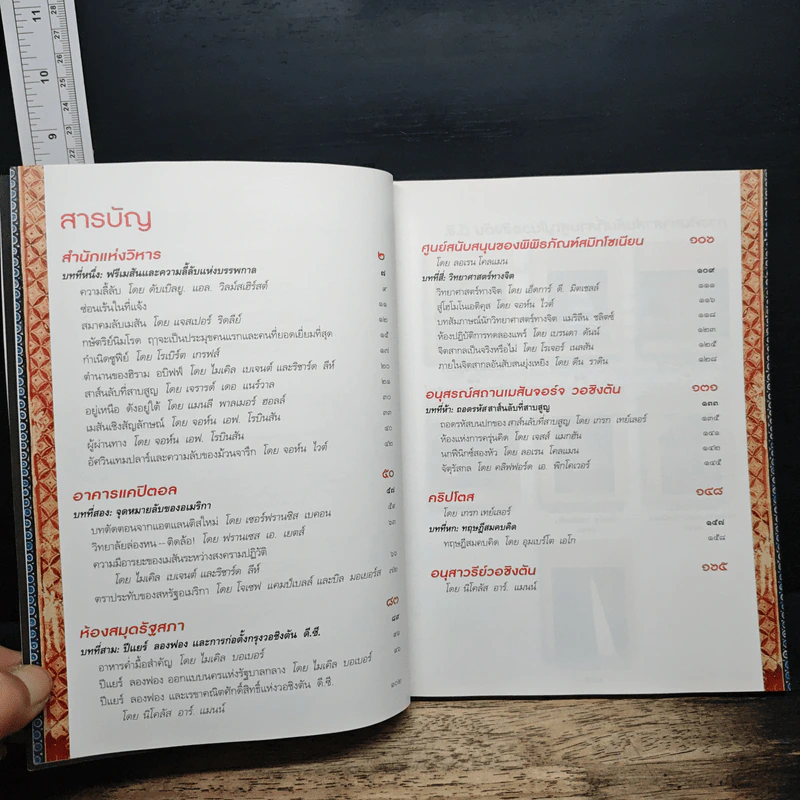 11
10
9
27
26
25
24
23
22
สารบัญ
สำนักแห่งวิหาร ๒
บทที่หนึ่ง: ฟรีเมสันและความลี้ลับแห่งบรรพกาล ๗
ความลี้ลับ โดย ดับเบิลยู. แอล. วิลม์สเฮิร์สต์ ๙
ซ่อนเร้นในที่แจ้ง ๑๑
สมาคมลับเมสัน โดย แจสเปอร์ ริดลีย์ ๑๒
กษัตริย์นิมโรด ฤๅจะเป็นประมุขคนแรกและคนที่ยอดเยี่ยมที่สุด ๑๕
กำเนิดซูฟีย์ โดย โรเบิร์ต เกรฟส์ ๑๗
ตำนานของฮิราม อบิฟฟ์ โดย ไมเคิล เบเจนต์ และริชาร์ด ลีห์
สาส์นลับที่สาบสูญ โดย เจรารด์ เดอ แนร์วาล
อยู่เหนือ ดังอยู่ใต้ โดย แมนลี พาลเมอร์ ฮอลล์
เมสันเชิงสัญลักษณ์ โดย จอห์น เอฟ. โรบินสัน
ผู้ผ่านทาง โดย จอห์น เอฟ. โรบินสัน
อัศวินเทมปลาร์และความลับของม้วนจารึก โดย จอห์น ไวต์ ๔๒
อาคารแคปิตอล ๕๐
บทที่สอง: จุดหมายลับของอเมริกา
บทตัดตอนจากแอตแลนติสใหม่ โดย เซอร์ฟรานซิส เบคอน
วิทยาลัยล่องหน -- ติดล้อ! โดย ฟรานเซส เอ. เยตส์
ความมีอารยะของเมสันระหว่างสงครามปฏิวัติ
โดย ไมเคิล เบเจนต์ และริชาร์ด ลีห์
ตราประทับของสหรัฐอเมริกา โดย โจเซฟ แคมป์เบลล์ และบิล มอเยอร์ส ๗๒
ห้องสมุดรัฐสภา ๘๓
บทที่สาม: ปีแยร์ ลองฟอง และการก่อตั้งกรุงวอชิงตัน ดี.ซี.
อาหารค่ำมื้อสำคัญ โดย ไมเคิล บอเบอร์
ปีแยร์ ลองฟอง ออกแบบนครแห่งรัฐบาลกลาง โดย ไมเคิล บอเบอร์
ปีแยร์ ลองฟอง และเรขาคณิตศักดิ์สิทธิ์แห่งวอชิงตัน ดี.ซี. ๑๐๒
โดย นิโคลัส อาร์. แมนน์
ศูนย์สนับสนุนของพิพิธภัณฑ์สมิทโซเนียน ๑๐๖
โดย ลอเรน โคลแมน
บทที่สี่: วิทยาศาสตร์ทางจิต ๑๐๙
วิทยาศาสตร์ทางจิต โดย เอ็ดการ์ ดี. มิตเชลล์ ๑๑๑
สู่โฮโมโนเอติคุส โดย จอห์น ไวต์ ๑๑๖
บทสัมภาษณ์นักวิทยาศาสตร์ทางจิต แมริลีน ชลิตซ์ ๑๑๘
ห้องปฏิบัติการทดลองแพร์ โดย เบรนดา ดันน์ ๑๒๓
จิตสากลเป็นจริงหรือไม่ โดย โรเจอร์ เนลสัน ๑๒๕
ภายในจิตสากลอันสับสนยุ่งเหยิง โดย ดีน ราดิน ๑๒๘
อนุสรณ์สถานเมสันจอร์จ วอชิงตัน ๑๓๑
บทที่ห้า: ถอดรหัสสาส์นลับที่สาบสูญ ๑๓๓
ถอดรหัสบนปกของสาส์นลับที่สาบสูญ โดย เกรก เทย์เลอร์ ๑๓๕
ห้องแห่งการครุ่นคิด โดย เจสส์ แมกฮัน ๑๔๑
นกฟีนิกซ์สองหัว โดย ลอเรน โคลแมน ๑๔๒
จัตุรัสกล โดย คลิฟฟอร์ด เอ. พิกโคเวอร์ ๑๔๕
คริปโตส ๑๔๘
โดย เกรก เทย์เลอร์
บทที่หก: ทฤษฎีสมคบคิด ๑๕๗
ทฤษฎีสมคบคิด โดย อุมเบร์โต เอโก ๑๕๘
อนุสาวรีย์วอชิงตัน ๑๖๕
โดย นิโคลัส อาร์. แมนน์